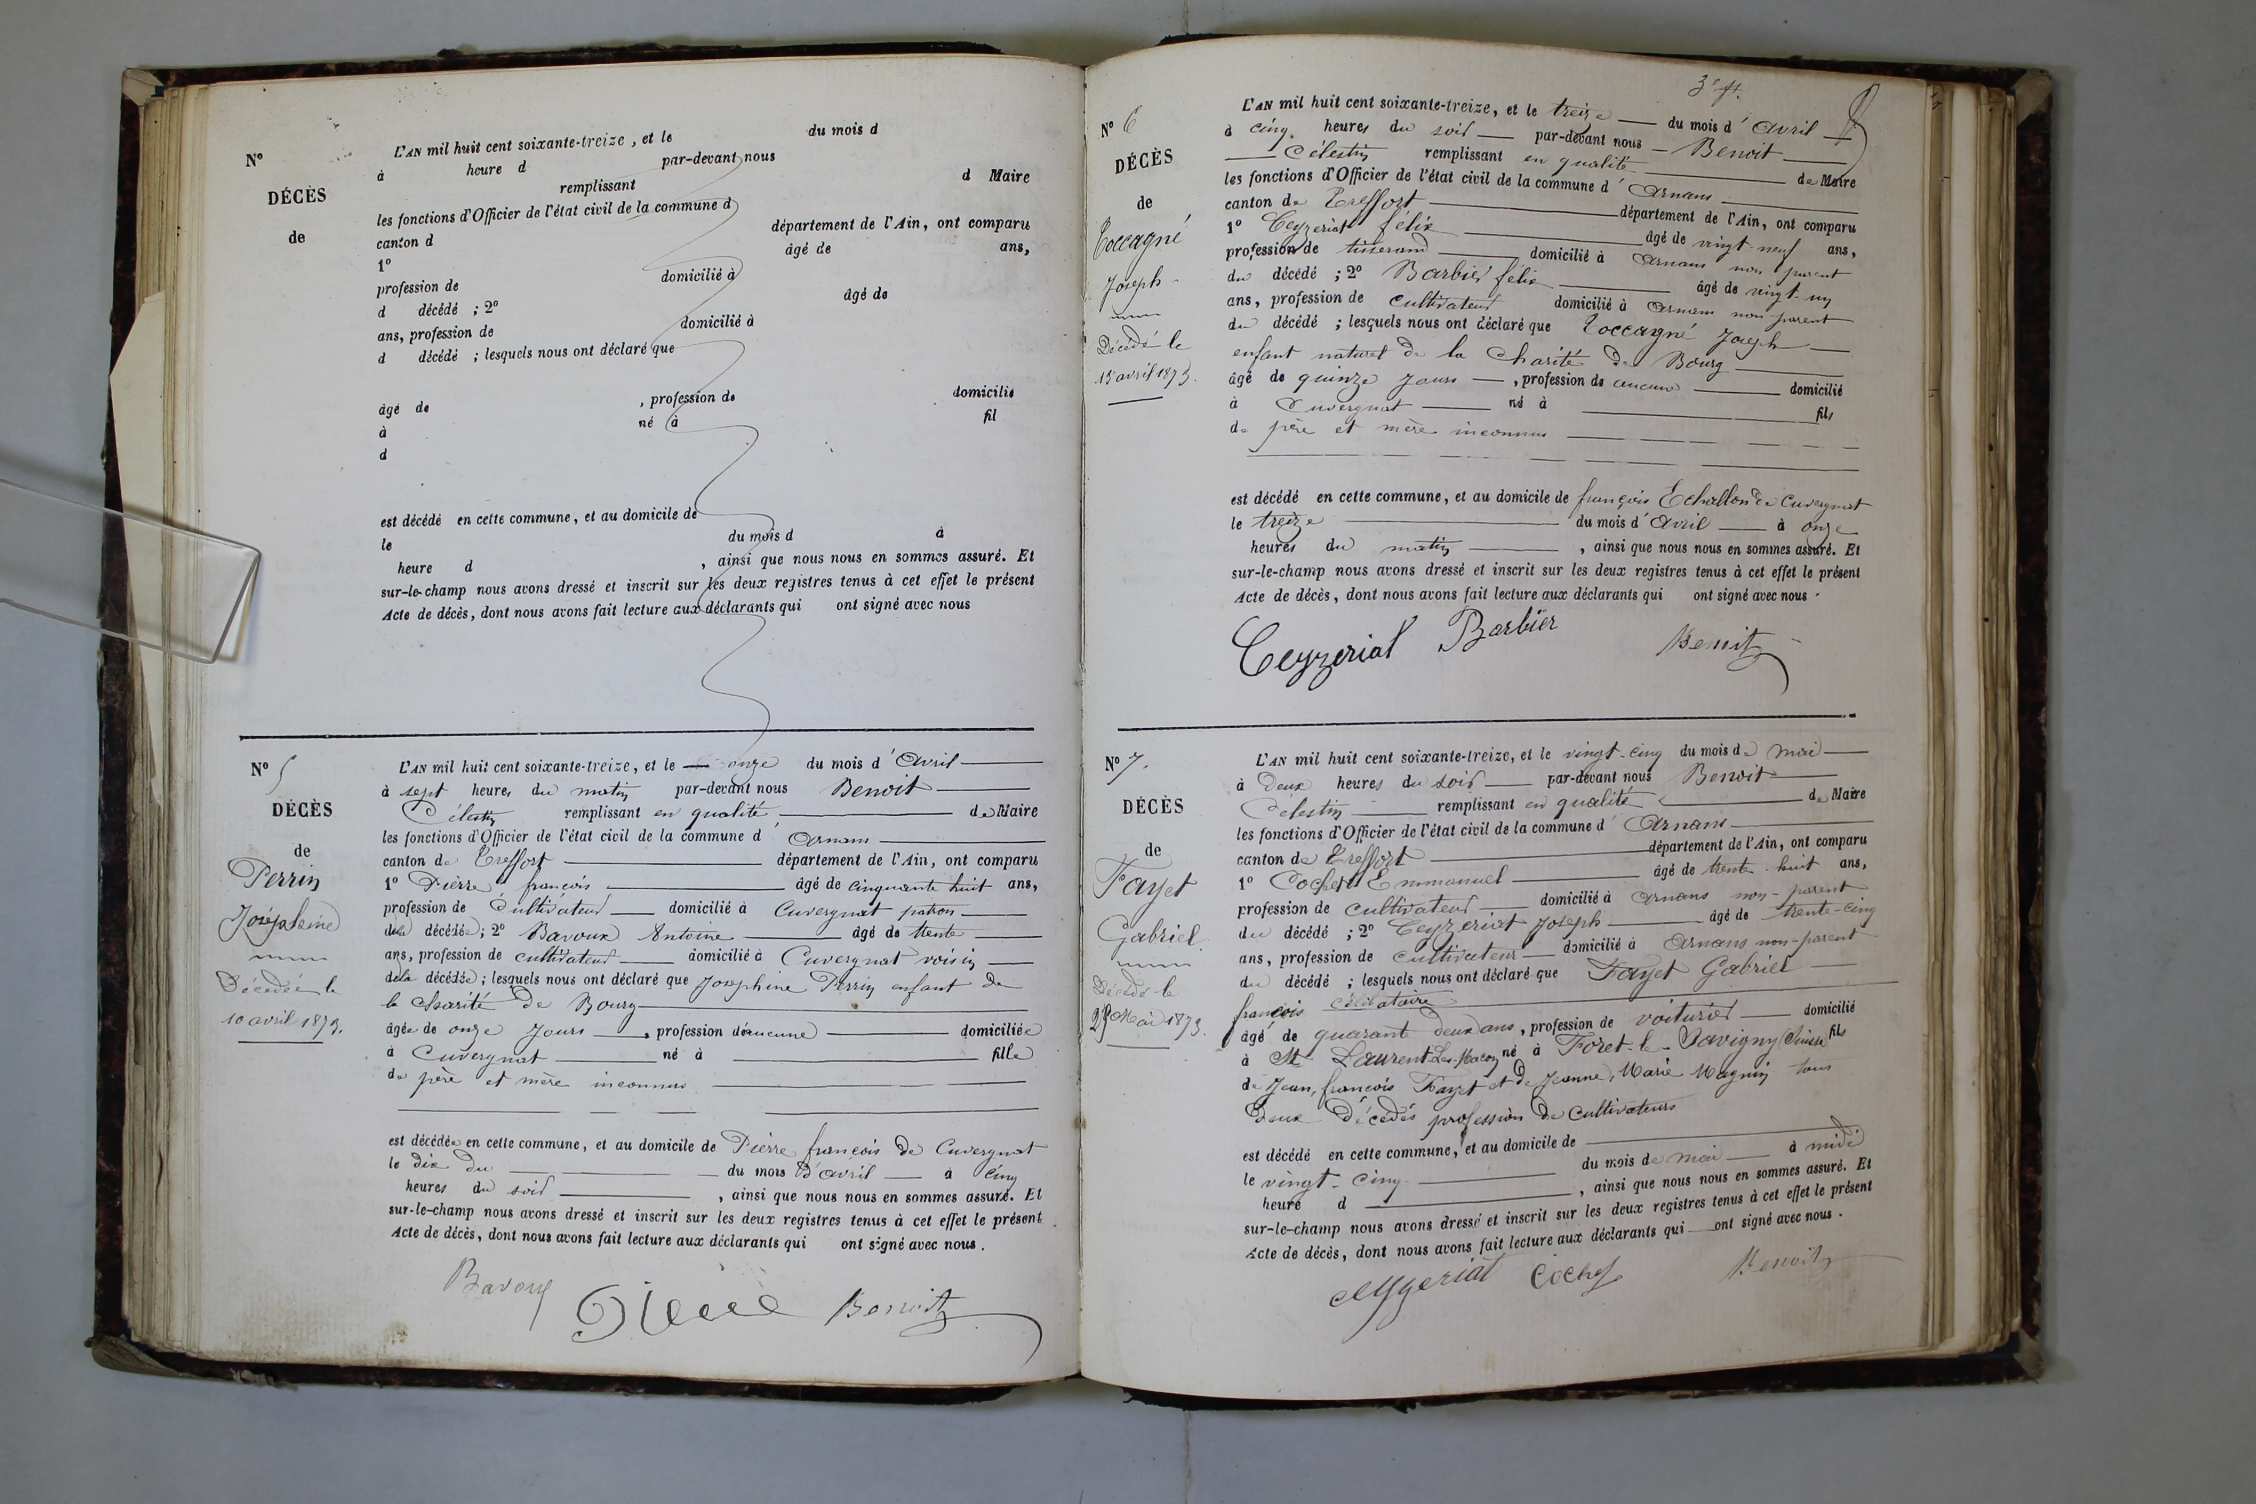 N°
DÉCÈS
de
L'AN mil huit cent soixante-treize, et le du mois d
à heure d par-devant nous
remplissant d Maire
les fonctions d'Officier de l'état civil de la commune d
canton d département de l'Ain, ont comparu
1° âgé de ans,
profession de domicilié à
d décédé ; 2° âgé de
ans, profession de domicilié à
d décédé ; lesquels nous ont déclaré que
âgé de , profession de domicilié
à né à fil
d
est décédé en cette commune, et au domicile de
le du mois d à
heure d , ainsi que nous nous en sommes assuré. Et
sur-le-champ nous avons dressé et inscrit sur les deux registres tenus à cet effet le présent
Acte de décès, dont nous avons fait lecture aux déclarants qui ont signé avec nous
N° 5
DÉCÈS
de
Perrin
Joséphine
Décédée le
10 avril 1873.
L'AN mil huit cent soixante-treize, et le onze du mois d'avril
à sept heures du matin par-devant nous Benoit
Célestin remplissant en qualité de Maire
les fonctions d'Officier de l'état civil de la commune d'Arnans
canton de Treffort département de l'Ain, ont comparu
1° Pierre françois âgé de cinquante huit ans,
profession de Cultivateur domicilié à Cuvergnat patron
de la décédée ; 2° Bavoux Antoine âgé de trente
ans, profession de cultivateur domicilié à Cuvergnat voisin
de la décédée ; lesquels nous ont déclaré que Josephine Perrin enfant de
la Charité de Bourg
âgée de onze jours , profession d'aucune domiciliée
à Cuvergnat né à fille
de père et mère inconnus
est décédée en cette commune, et au domicile de Pierre françois de Cuvergnat
le dix du du mois d'avril à cinq
heures du soir , ainsi que nous nous en sommes assuré. Et
sur-le-champ nous avons dressé et inscrit sur les deux registres tenus à cet effet le présent
Acte de décès, dont nous avons fait lecture aux déclarants qui ont signé avec nous.
Bavoux Pierre Benoit
3e ft.
N° 6
DÉCÈS
de
Toccagné
Joseph
Décédé le
13 avril 1873.
L'AN mil huit cent soixante-treize, et le treize du mois d'avril
à cinq heures du soir par-devant nous Benoit
Célestin remplissant en qualité de Maire
les fonctions d'Officier de l'état civil de la commune d'Arnans
canton de Treffort département de l'Ain, ont comparu
1° Ceyzeriat félix âgé de vingt-neuf ans,
profession de tisserand domicilié à Arnans non parent
du décédé ; 2° Barbier félix âgé de vingt-un
ans, profession de cultivateur domicilié à Arnans non parent
du décédé ; lesquels nous ont déclaré que Toccagné Joseph
enfant naturel de la Charité de Bourg
âgé de quinze jours , profession de aucune domicilié
à Cuvergnat né à fils
de père et mère inconnus
est décédé en cette commune, et au domicile de françois Echallon de Cuvergnat
le treize du mois d'avril à onze
heures du matin , ainsi que nous nous en sommes assuré. Et
sur-le-champ nous avons dressé et inscrit sur les deux registres tenus à cet effet le présent
Acte de décès, dont nous avons fait lecture aux déclarants qui ont signé avec nous.
Ceyzeriat Barbier Benoit
N° 7.
DÉCÈS
de
Fayet
Gabriel
Décédé le
25 Mai 1873.
L'AN mil huit cent soixante-treize, et le vingt-cinq du mois de mai
à deux heures du soir par-devant nous Benoit
Célestin remplissant en qualité de Maire
les fonctions d'Officier de l'état civil de la commune d'Arnans
canton de Treffort département de l'Ain, ont comparu
1° Cochet Emmanuel âgé de trente-huit ans,
profession de cultivateur domicilié à Arnans non-parent
du décédé ; 2° Ceyzeriat Joseph âgé de trente-cinq
ans, profession de cultivateur domicilié à Arnans non-parent
du décédé ; lesquels nous ont déclaré que Fayet Gabriel
françois célibataire
âgé de quarant deux ans, profession de voiturier domicilié
à St Laurent-Les-Macon né à Foret-le-Savigny (Suisse fils
de Jean, françois Fayet et de Jeanne, Marie Magnin tous
deux décédés profession de Cultivateurs
est décédé en cette commune, et au domicile de
le vingt-cinq du mois de mai à midi
heure d , ainsi que nous nous en sommes assuré. Et
sur-le-champ nous avons dressé et inscrit sur les deux registres tenus à cet effet le présent
Acte de décès, dont nous avons fait lecture aux déclarants qui ont signé avec nous.
Ceyzeriat Cochet Benoit